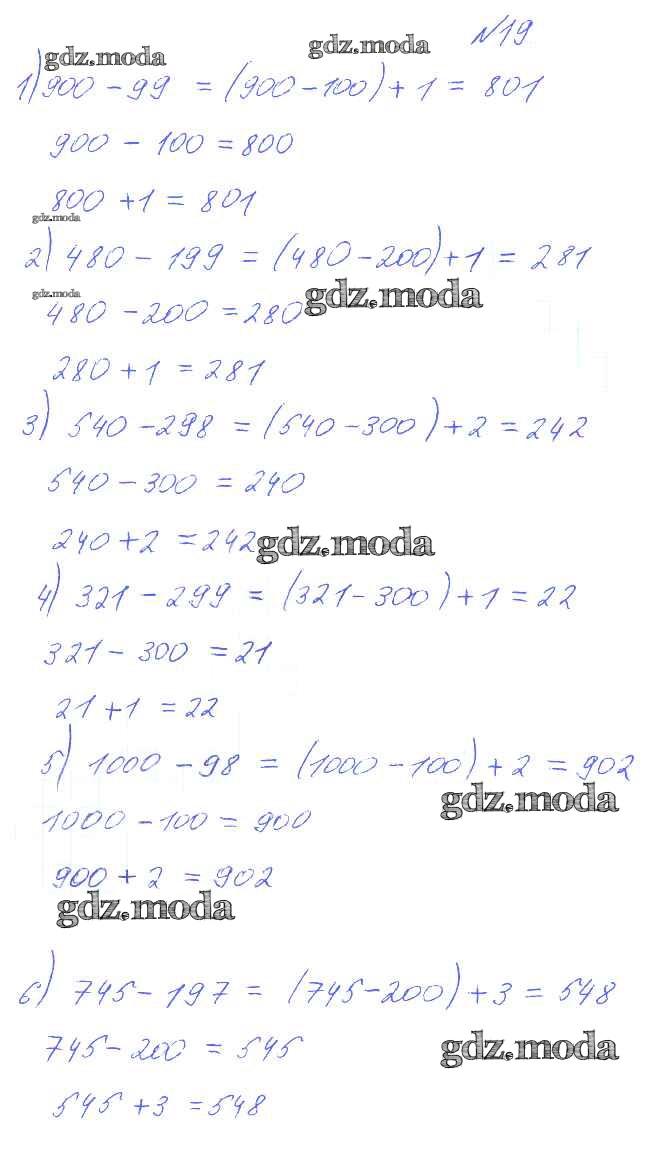 gdz.moda gdz.moda №19
1) 900 - 99 = (900 - 100) + 1 = 801
900 - 100 = 800
800 + 1 = 801
gdz.moda
2) 480 - 199 = (480 - 200) + 1 = 281
gdz.moda gdz.moda
480 - 200 = 280
280 + 1 = 281
3) 540 - 298 = (540 - 300) + 2 = 242
540 - 300 = 240
240 + 2 = 242 gdz.moda
4) 321 - 299 = (321 - 300) + 1 = 22
321 - 300 = 21
21 + 1 = 22
5) 1000 - 98 = (1000 - 100) + 2 = 902
gdz.moda
1000 - 100 = 900
900 + 2 = 902
gdz.moda
6) 745 - 197 = (745 - 200) + 3 = 548
745 - 200 = 545 gdz.moda
545 + 3 = 548